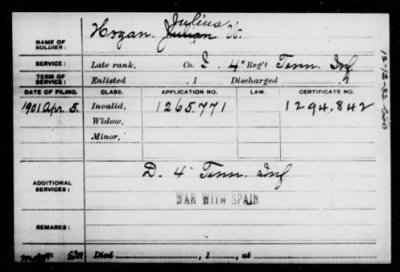 Julius
NAME OF SOLDIER: Hogan, Julian W.
SERVICE: Late rank, Co. I, 4" Reg't Tenn. Inf
TERM OF SERVICE: Enlisted , 1 Discharged , 1
DATE OF FILING. CLASS. APPLICATION NO. LAW. CERTIFICATE NO.
1901 Apr. 5. Invalid, 1265.771 1294.842
Widow,
Minor,
ADDITIONAL SERVICES: D. 4" Tenn. Inf
WAR WITH SPAIN
REMARKS:
Died , 1 , at